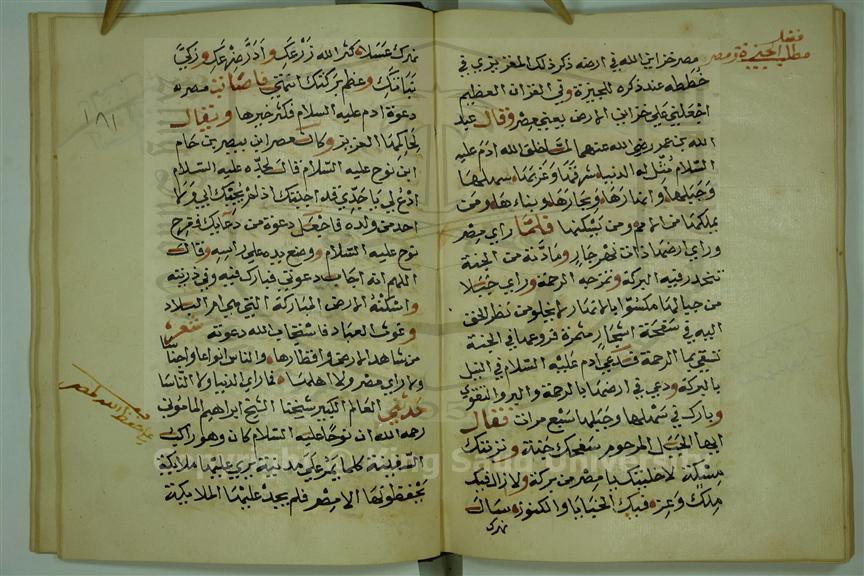 فضل
مطلب الجيزة ومصر
مصر خزاين الله في ارضه ذكر ذلك المغريزي في
خططه عند ذكره للجيزة وفي القران العظيم
اجعلني علي خزاين الارض يعني مصر وقال عبد
الله بن عمر رضي الله عنهما لما خلق الله ادم عليه
السلام مثل له الدنيا شرقها وغربها وسهلها
وجبلها وانهارها وبحارها وبناءها ومن
يملكها من الامم ومن يسكنها فلما راي مصر
وراي ارضها ذات نهر جار ومادته من الجنة
تنحدر فيه البركة وتمزجه الرحمة وراي جبلا
من جبالها مكسوا بالانوار لا يخلو من نظر الحق
اليه في سفحه اشجار مثمرة فروعها في الجنة
تسقي بما الرحمة فدعي ادم عليه السلام في النيل
بالبركة ودعي في ارضها بالرحمة والبر والتقوي
وبارك في سهلها وجبلها سبع مرات فقال
ايها الجبل المرحوم سفحك جنة وتربتك
مسكة لا خليت يا مصر من بركة ولا زال فيك
ملك وعز فيك الخبايا والكنوز سال
نهرك
نهرك عسلا كثر الله زرعك وادر ضرعك وزكي
نباتك وعظم بركتك فاصابت مصر
دعوة ادم عليه السلام فكثر خيرها ويقال
لحاكمها العزيز وكان مصر ابن بيصر بن حام
ابن نوح عليه السلام قال لجده عليه السلام
ادع لي يا جدي قد اجبتك اذ لم يجبك ابي ولا
احد من ولده فاجعل دعوة من دعايك ففرح
نوح عليه السلام ووضع يده علي راسه وقال
اللهم انه اجاب دعوتي فبارك فيه وفي ذريته
واسكنه الارض المباركة التي هي ام البلاد
وغوث العباد فاستجاب الله دعوته شعر
من شاهد الارض واقطارها والناس انواعا واجناسا
ولا راي مصر ولا اهلها فما راي الدنيا ولا الناسا
حدثني العالم الكبير شيخنا الشيخ ابراهيم الماموني
رحمه الله ان نوحا عليه السلام كان وهو راكب
السفينة كلما يمر علي مدينة يري عليها ملايكة
يحفظونها الا مصر فلم يجد عليها الملايكة
١٨١
حفظ الله لمصر
Copyright © King Saud University
1957